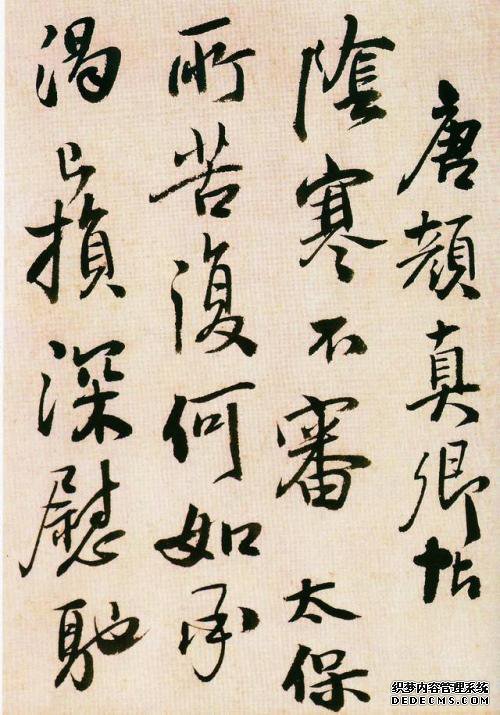 唐顏真卿帖
陰寒不審 太保
所苦復何如承
渴已損深慰馳
织梦内容管理系统
DEDECMS.COM